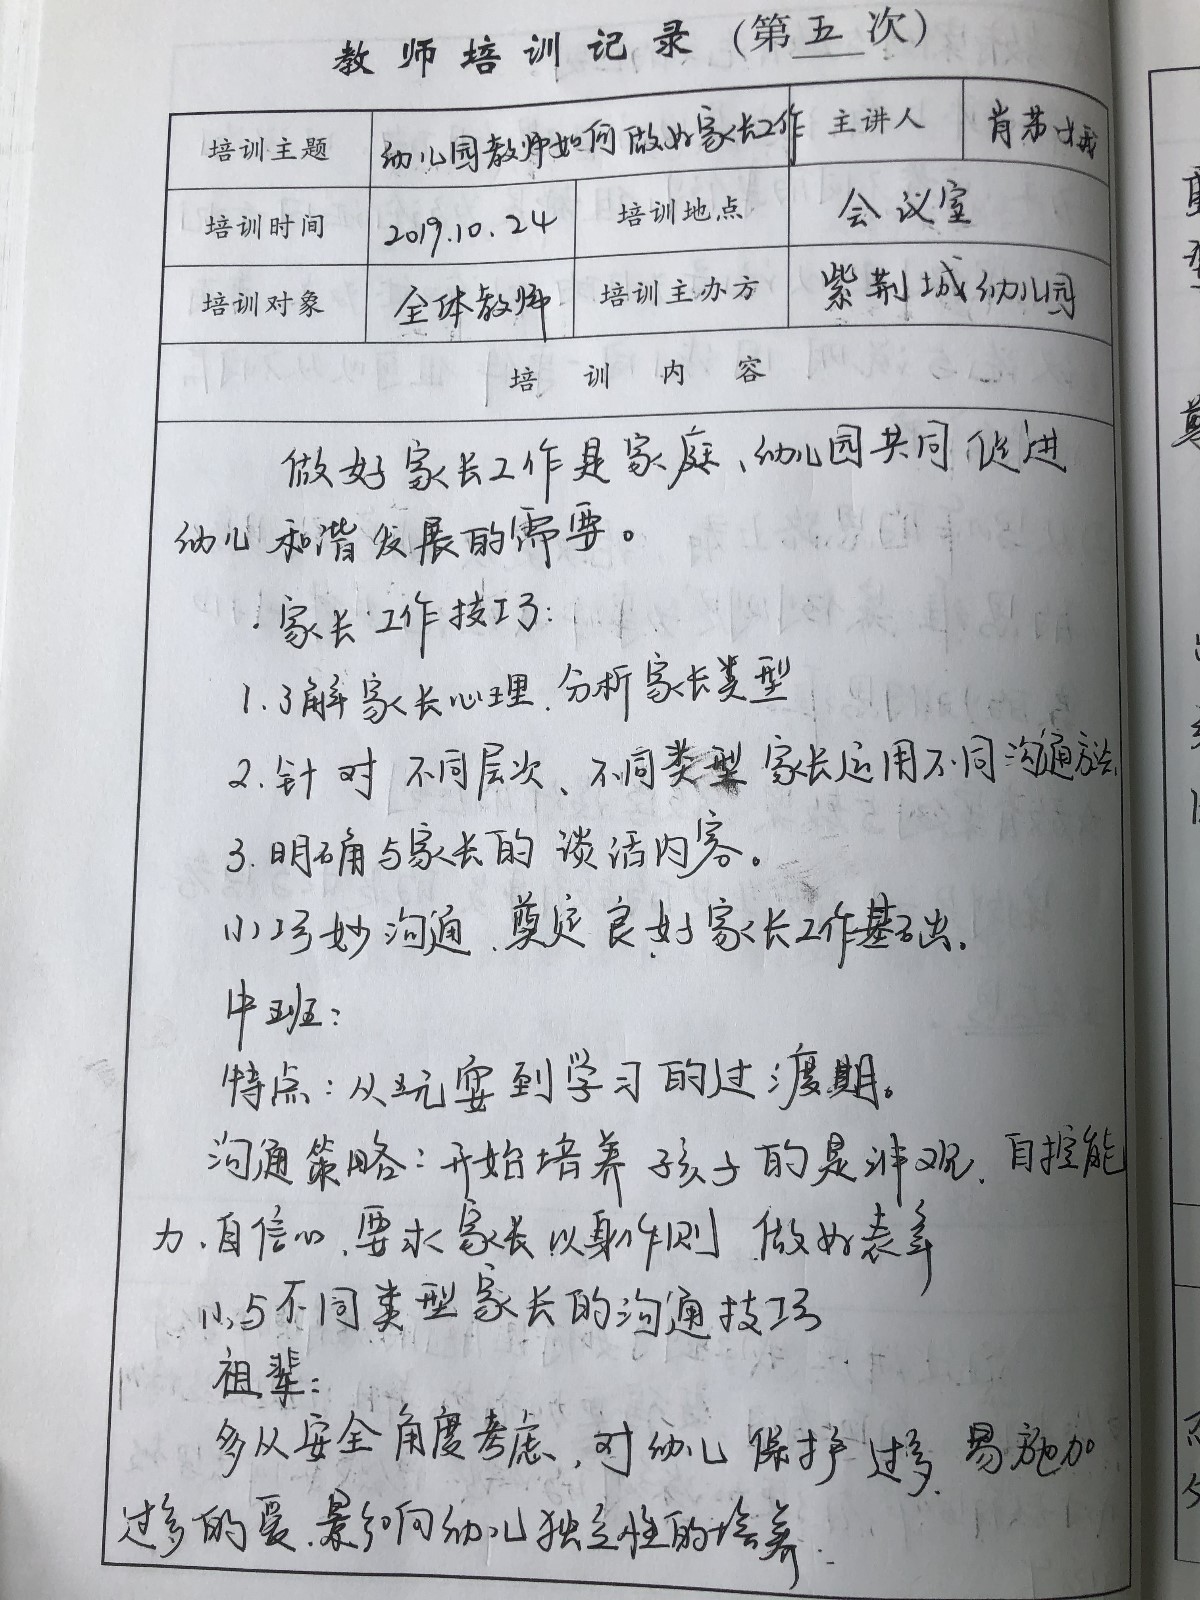 教师培训记录(第五次)
培训主题 幼儿园教师如何做好家长工作 主讲人 肖
培训时间 2019.10.24 培训地点 会议室
培训对象 全体教师 培训主办方 紫荆城幼儿园
培训内容
做好家长工作是家庭、幼儿园共同促进
幼儿和谐发展的需要。
家长工作技巧:
1.了解家长心理、分析家长类型
2.针对不同层次、不同类型家长运用不同沟通方法、
3.明确与家长的谈话内容。
小巧妙沟通、奠定良好家长工作基础。
中班:
特点:从玩耍到学习的过渡期。
沟通策略:开始培养孩子的是非观、自控能
力、自信心、要求家长以身作则 做好表率
与不同类型家长的沟通技巧
祖辈:
多从安全角度考虑、对幼儿保护过多、易施加
过多的爱、影响幼儿独立性的培养、